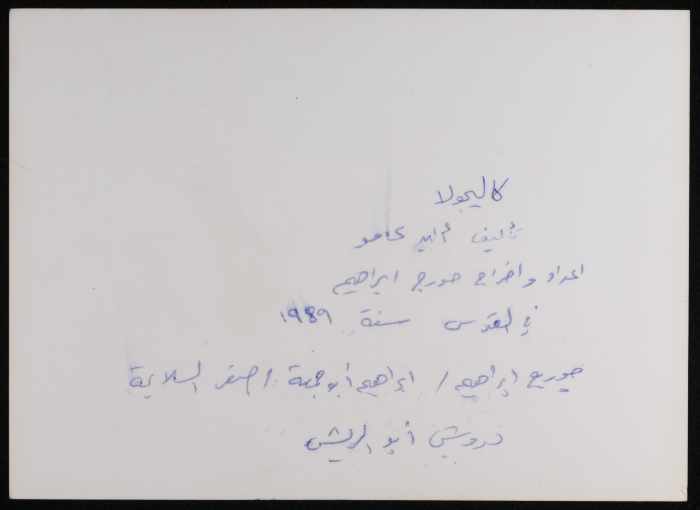 كاليجولا
تأليف ألبير كامو
اعداد و اخراج جورج ابراهيم
في القدس سنة ١٩٨٩
جورج إبراهيم / إبراهيم أبو جمعة / السلايمة
درويش أبو الريش